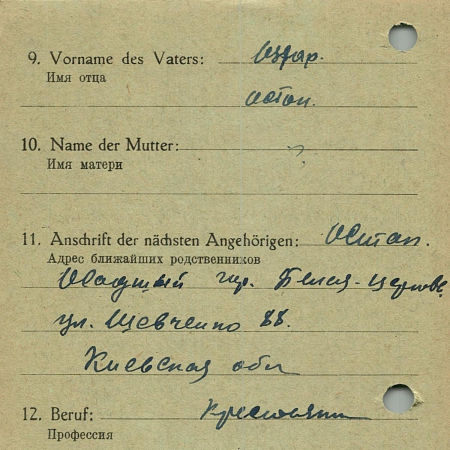 9. Vorname des Vaters:
Имя отца
Остап.
10. Name der Mutter:
Имя матери
11. Anschrift der nächsten Angehörigen: Остап.
Адрес ближайших родственников
Белая-Церковь
ул. Шевченко 88.
Киевская обл
12. Beruf: Крестьянин
Профессия